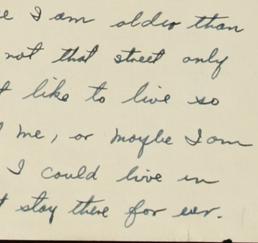 I am older than
not that street only
like to live so
me, or maybe I am
I could live in
stay there for ever.